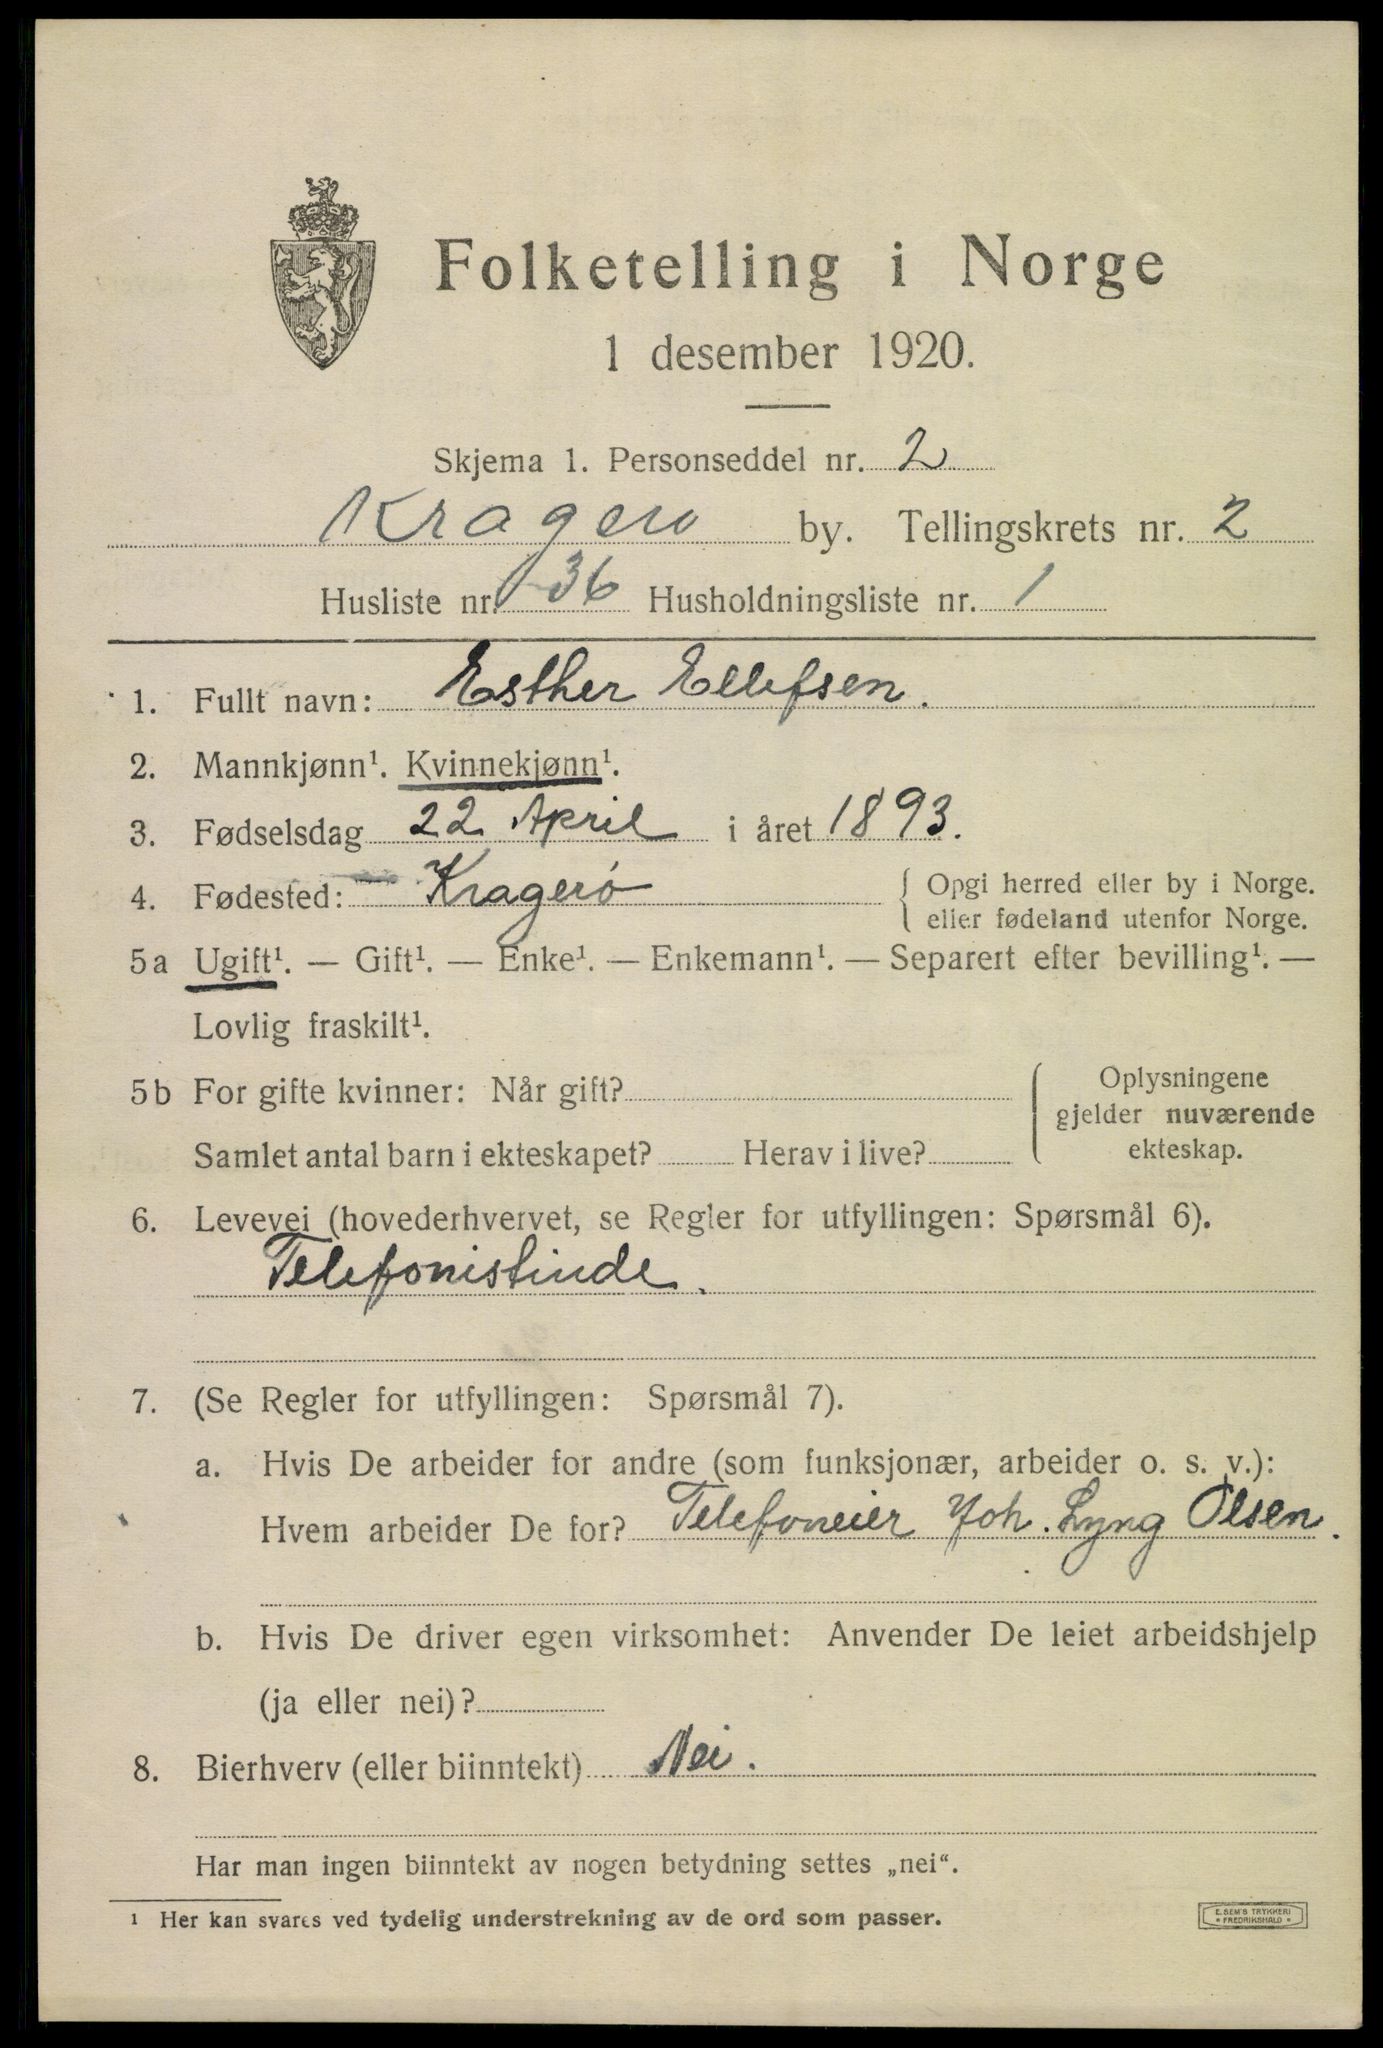 Folketelling i Norge
1 desember 1920.
Skjema 1. Personseddel nr. 2
Kragerø by. Tellingskrets nr. 2
Husliste nr. 36 Husholdningsliste nr. 1
1. Fullt navn: Esther Ellefsen.
2. Mannkjønn¹. Kvinnekjønn¹.
3. Fødselsdag 22 April i året 1893.
4. Fødested: Kragerø { Opgi herred eller by i Norge.
eller fødeland utenfor Norge.
5a Ugift¹. — Gift¹. — Enke¹. — Enkemann¹. — Separert efter bevilling¹. —
Lovlig fraskilt¹.
5b For gifte kvinner: Når gift?
Samlet antal barn i ekteskapet? Herav i live?
Oplysningene
gjelder nuværende
ekteskap.
6. Levevei (hovederhvervet, se Regler for utfyllingen: Spørsmål 6).
Telefonistinde.
7. (Se Regler for utfyllingen: Spørsmål 7).
a. Hvis De arbeider for andre (som funksjonær, arbeider o. s. v.):
Hvem arbeider De for? Telefoneier Joh. Lyng Olsen.
b. Hvis De driver egen virksomhet: Anvender De leiet arbeidshjelp
(ja eller nei)?
8. Bierhverv (eller biinntekt) Nei.
Har man ingen biinntekt av nogen betydning settes „nei“.
¹ Her kan svares ved tydelig understrekning av de ord som passer.
E. SEM'S TRYKKERI
* FREDRIKSHALD *